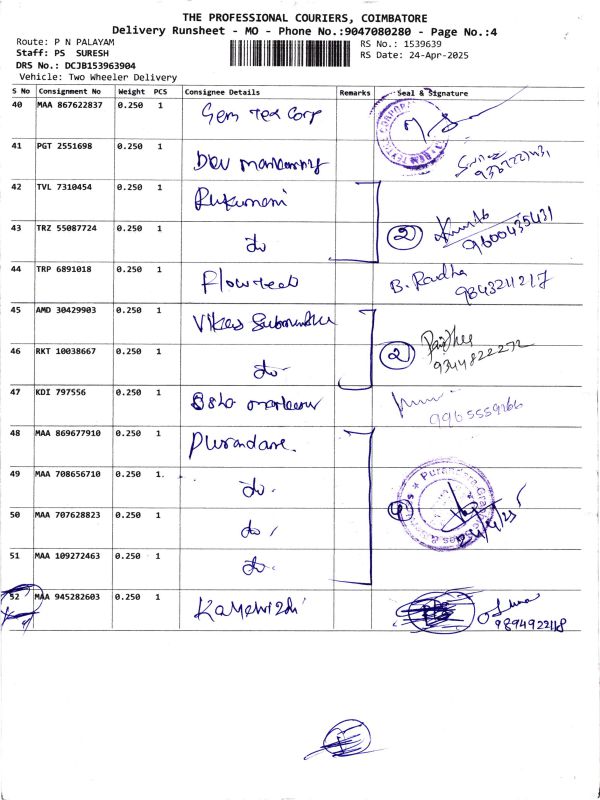 THE PROFESSIONAL COURIERS, COIMBATORE
Delivery Runsheet - MO - Phone No.:9047080280 - Page No.:4
Route: P N PALAYAM
Staff: PS SURESH
DRS No.: DCJB153963904
Vehicle: Two Wheeler Delivery
RS No.: 1539639
RS Date: 24-Apr-2025
S No Consignment No Weight PCS Consignee Details Remarks Seal & Signature
40 MAA 867622837 0.250 1 Gem Tex Corp
41 PGT 2551698 0.250 1
42 TVL 7310454 0.250 1 Rukumani
43 TRZ 55087724 0.250 1 do 2 9600435431
44 TRP 6891018 0.250 1 Flowtech B. Radha
9843211217
45 AMD 30429903 0.250 1 Vikas
46 RKT 10038667 0.250 1 do 2 9344822272
47 KDI 797556 0.250 1 9965559166
48 MAA 869677910 0.250 1 Purandare.
49 MAA 708656710 0.250 1 do.
50 MAA 707628823 0.250 1 do. 4
51 MAA 109272463 0.250 1 do.
52 MAA 945282603 0.250 1
9894922118